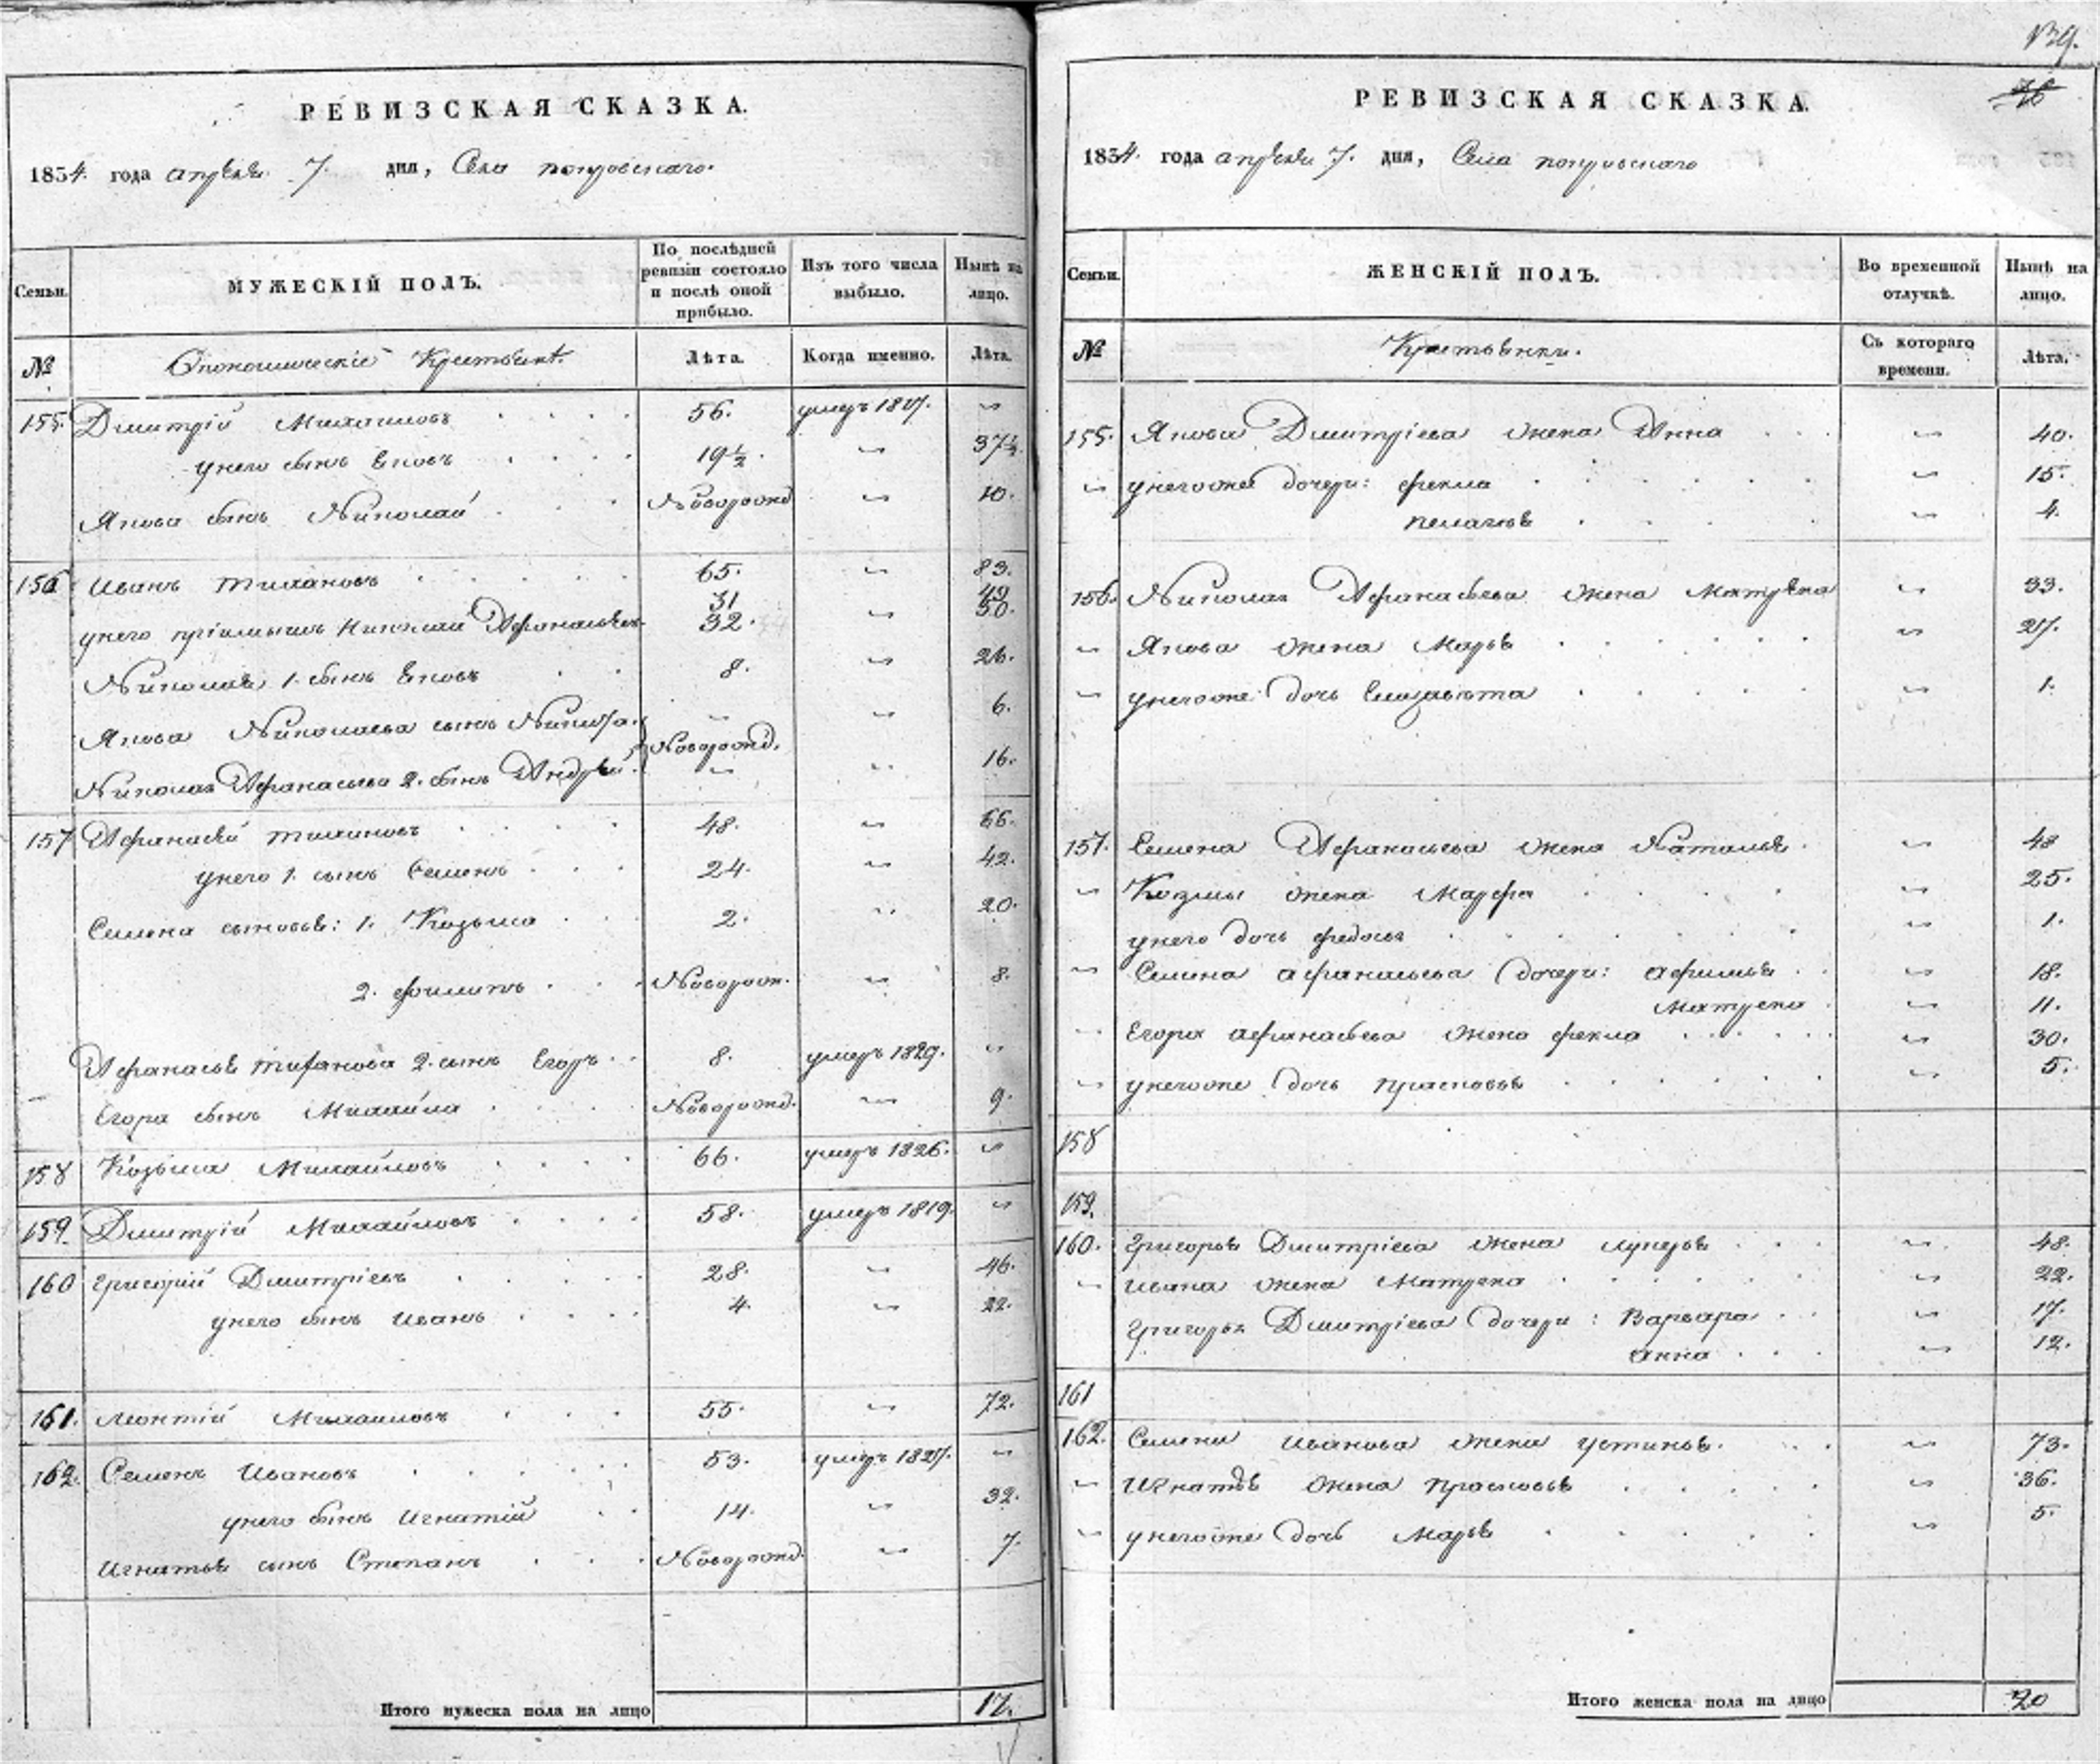 139.
76
РЕВИЗСКАЯ СКАЗКА.
1834. года апрѣля 7. дня, Села покровскаго.
Семьи. МУЖЕСКІЙ ПОЛЪ. По послѣдней ревизіи состояло и послѣ оной прибыло. Изъ того числа выбыло. Нынѣ на лицо.
№ Економическіе Крестьяне. Лѣта. Когда именно. Лѣта.
155. Дмитрій Михаиловъ 56. умеръ 1827. "
унего сынъ Яковъ 19½. " 37½.
Якова сынъ Николай Новорожд " 10.
156 Иванъ 65. " 83.
унего пріемышъ Николай Афанасьевъ 31 32. " 49 50.
Николая 1. сынъ Яковъ 8. " 26.
Якова Николаева сынъ " " 6.
Новорожд.
Николая Афанасьева 2. сынъ Андрей " " 16.
157 Афанасій 48. " 66.
унего 1. сынъ Семенъ 24. " 42.
Семена сыновья: 1. Козьма 2. " 20.
2. филипъ Новорож. " 8.
Афанасья 2. сынъ Егоръ 8. умеръ 1829. "
Егора сынъ Михайла Новорожд. " 9.
158 Козьма Михайловъ 66. умеръ 1826. "
159. Дмитрій Михайловъ 58. умеръ 1819. "
160 Григорій Дмитріевъ 28. " 46.
унего сынъ Иванъ 4. " 22.
161. Леонтій Михаиловъ 55. " 72.
162. Семенъ Ивановъ 53. умеръ 1827. "
унего сынъ Игнатій 14. " 32.
Игнатья сынъ Степанъ Новорожд. " 7.
Итого мужеска пола на лицо 17.
РЕВИЗСКАЯ СКАЗКА.
1834. года апрѣля 7. дня, Села покровскаго
Семьи. ЖЕНСКІЙ ПОЛЪ. Во временной отлучкѣ. Нынѣ на лицо.
№ Крестьянки. Съ котораго времени. Лѣта.
155. Якова Дмитріева жена Анна " 40.
" унегоже дочери: фекла " 15.
пелагѣя " 4.
156. Николая Афанасьева жена Матрена " 33.
" Якова жена Марья " 27.
" унегоже дочь Елизавѣта " 1.
157. Семена Афанасьева жена Наталья " 48
" Козмы жена Марфа " 25.
унего дочь федосья " 1.
" Семена афанасьева дочери: афимья " 18.
Матрена " 11.
" Егора афанасьева жена фекла " 30.
" унегоже дочь прасковья " 5.
158
159.
160. Григорья Дмитріева жена лукерья " 48.
" Ивана жена Матрена " 22.
Григорья Дмитріева дочери: Варвара " 17.
анна " 12.
161
162. Семена Иванова жена устинья " 73.
" Игнатья жена прасковья " 36.
" унегоже дочь Марья " 5.
Итого женска пола на лицо 20